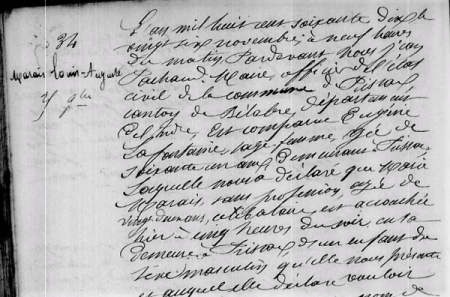 34
Marais Louis-Auguste
L'an mil huit cent soixante dix le
vingt six novembre, à neuf heures
du matin, Pardevant Nous
Maire, officier de l'état
civil de la commune de
canton de Bélabre, département
de l'Indre, Est comparue Eugénie
Lafontaine, sage femme, agée de
soixante un ans, demeurant à
laquelle nous a déclaré que Marie
Marais, sans profession, agée de
vingt deux ans, célibataire, est accouchée
hier à cinq heures du soir, en sa
demeure à d'un enfant du
sexe masculin, qu'elle nous présente
et auquel elle déclare vouloir